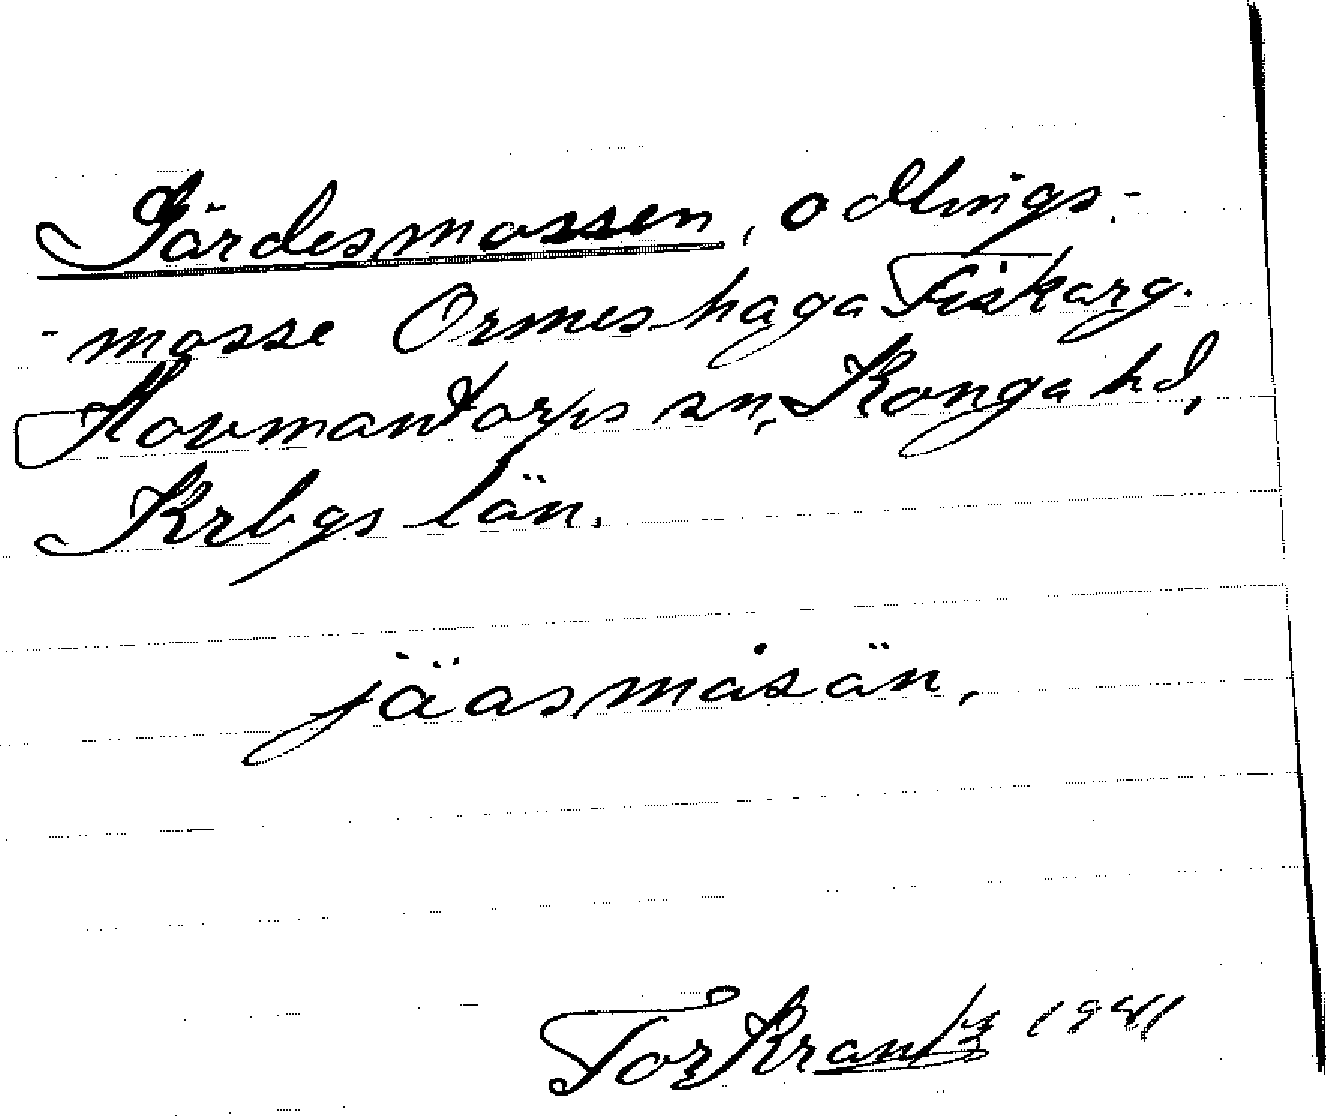 Gärdesmossen, odlings-
-mosse Ormeshaga Fiskarg.
Hovmantorps sn, Konga hd,
Krbgs län.
jäasmåsän,
Tor Krantz 1941